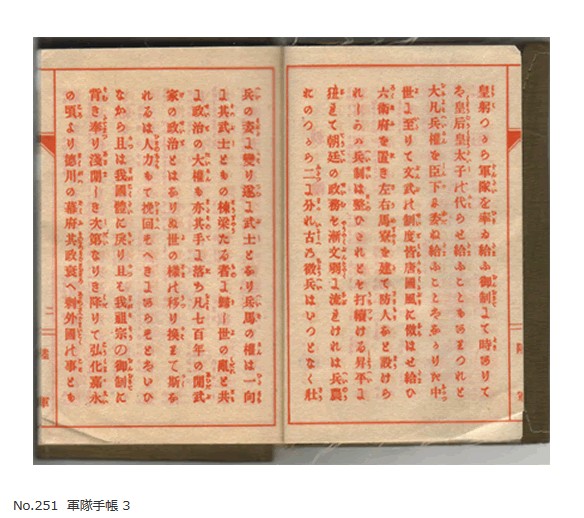 皇躬つから軍隊を率ゐ給ふ御制にて時ありて
は皇后皇太子の代らせ給ふこともありつれと
大凡兵權を臣下に委ね給ふことはなかりき中
世に至りて文武の制度皆唐國風に傚はせ給ひ
六衛府を置き左右馬寮を建て防人なと設けら
れしかは兵制は整ひたれとも打續ける昇平に
狃れて朝廷の政務も漸文弱に流れけれは兵農
おのつから二に分れ古の徴兵はいつとなく壯
兵の姿に變り遂に武士となり兵馬の權は一向
に其武士ともの棟梁たる者に歸し世の亂と共
に政治の大權も亦其手に落ち凡七百年の間武
家の政治とはなりぬ世の樣の移り換りて斯な
れるは人力もて挽回すへきにあらすとはいひ
なから且は我國體に戻り且は我祖宗の御制に
背き奉り浅間しき次第なりき降りて弘化嘉永
の頃より徳川の幕府其政衰へ剩外國の事とも
二
陸
軍
No.251 軍隊手帳 3